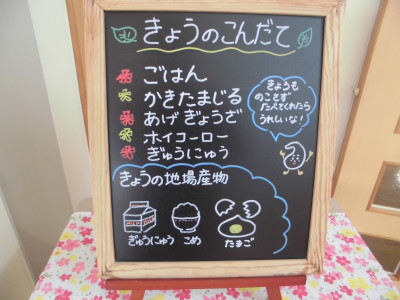 きょうのこんだて
ごはん
かきたまじる
あげぎょうざ
ホイコーロー
ぎゅうにゅう
きょうも
のこさず
たべてくれたら
うれしいな!
きょうの地場産物
ぎゅうにゅう
こめ
たまご